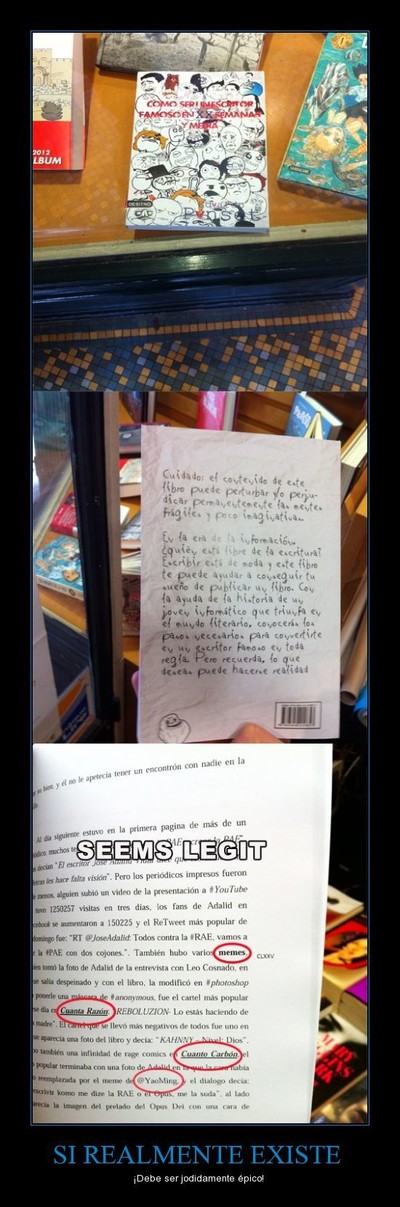 2012
ALBUM
COMO SER UN ESCRITOR
FAMOSO EN XX SEMANAS
Y MEDIA
DESTINO
Cuidado: el contenido de este
libro puede perturbar y/o perju-
dicar permanentemente las mentes
frágiles y poco imaginativas.
En la era de la información,
¿quién está libre de la escritura?
Escribir está de moda y este libro
te puede ayudar a conseguir tu
sueño de publicar un libro. Con
la ayuda de la historia de un
joven informático que triunfa en
el mundo literario, conocerás los
pasos necesarios para convertirte
en un escritor famoso en toda
regla. Pero recuerda, lo que
deseas puede hacerse realidad
bien, y él no le apetecía tener un encontrón con nadie en la
Al día siguiente estuvo en la primera pagina de más de un
muchos
SEEMS LEGIT
decían "El escritor José Adalid Vidal
les hace falta visión". Pero los periódicos impresos fueron
menos, alguien subió un video de la presentación a #YouTube
tuvo 1250257 visitas en tres días, los fans de Adalid en
cebook se aumentaron a 150225 y el ReTweet más popular de
domingo fue: "RT @JoseAdalid: Todos contra la #RAE, vamos a
la #PAE con dos cojones.". También hubo varios memes, CLXXIV
tomó la foto de Adalid de la entrevista con Leo Cosnado, en
salía despeinado y con el libro, la modificó en #photoshop
ponerle una máscara de #anonymous, fue el cartel más popular
ese día en Cuanta Razón: ¡REBOLUZION- Lo estás haciendo de
madre". El cartel que se llevó más negativos de todos fue uno en
aparecía una foto del libro y decía: "KAHNNY – Nivel: Dios".
también una infinidad de rage comics en Cuanto Carbón, el
popular terminaba con una foto de Adalid en la que la cara había
reemplazada por el meme de @YaoMing, y el dialogo decía:
escrivir komo me dize la RAE o el Opus, me la suda", al lado
arecía la imagen del prelado del Opus Dei con una cara de
SI REALMENTE EXISTE
¡Debe ser jodidamente épico!